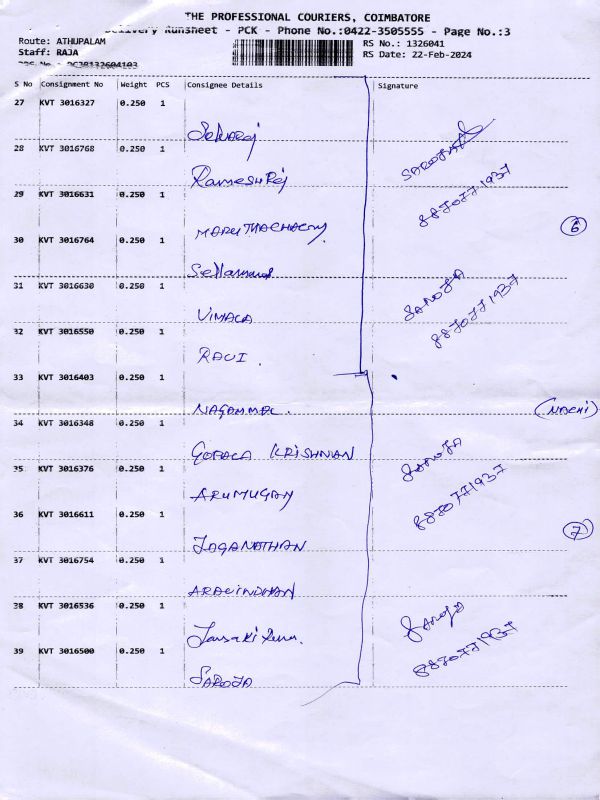 THE PROFESSIONAL COURIERS, COIMBATORE
Delivery Runsheet - PCK - Phone No.:0422-3505555 - Page No.:3
Route: ATHUPALAM
RS No.: 1326041
Staff: RAJA
RS Date: 22-Feb-2024
S No Consignment No Weight PCS Consignee Details Signature
27 KVT 3016327 0.250 1
Selvaraj
28 KVT 3016768 0.250 1
SAROJA
RameshRaj
29 KVT 3016631 0.250 1
8870771937
MARUTHACHALAM
6
30 KVT 3016764 0.250 1
Sellammal
31 KVT 3016630 0.250 1
SAROJA
VIMALA
8870771937
32 KVT 3016550 0.250 1
RAVI.
33 KVT 3016403 0.250 1
NAGAMMAL.
(NACHI)
34 KVT 3016348 0.250 1
GOPALA KRISHNAN
SAROJA
35 KVT 3016376 0.250 1
ARUMUGAM
8870771937
36 KVT 3016611 0.250 1
7
JAGANATHAN
37 KVT 3016754 0.250 1
ARAVINDHAN
38 KVT 3016536 0.250 1
SAROJA
39 KVT 3016500 0.250 1
8870771937
SAROJA